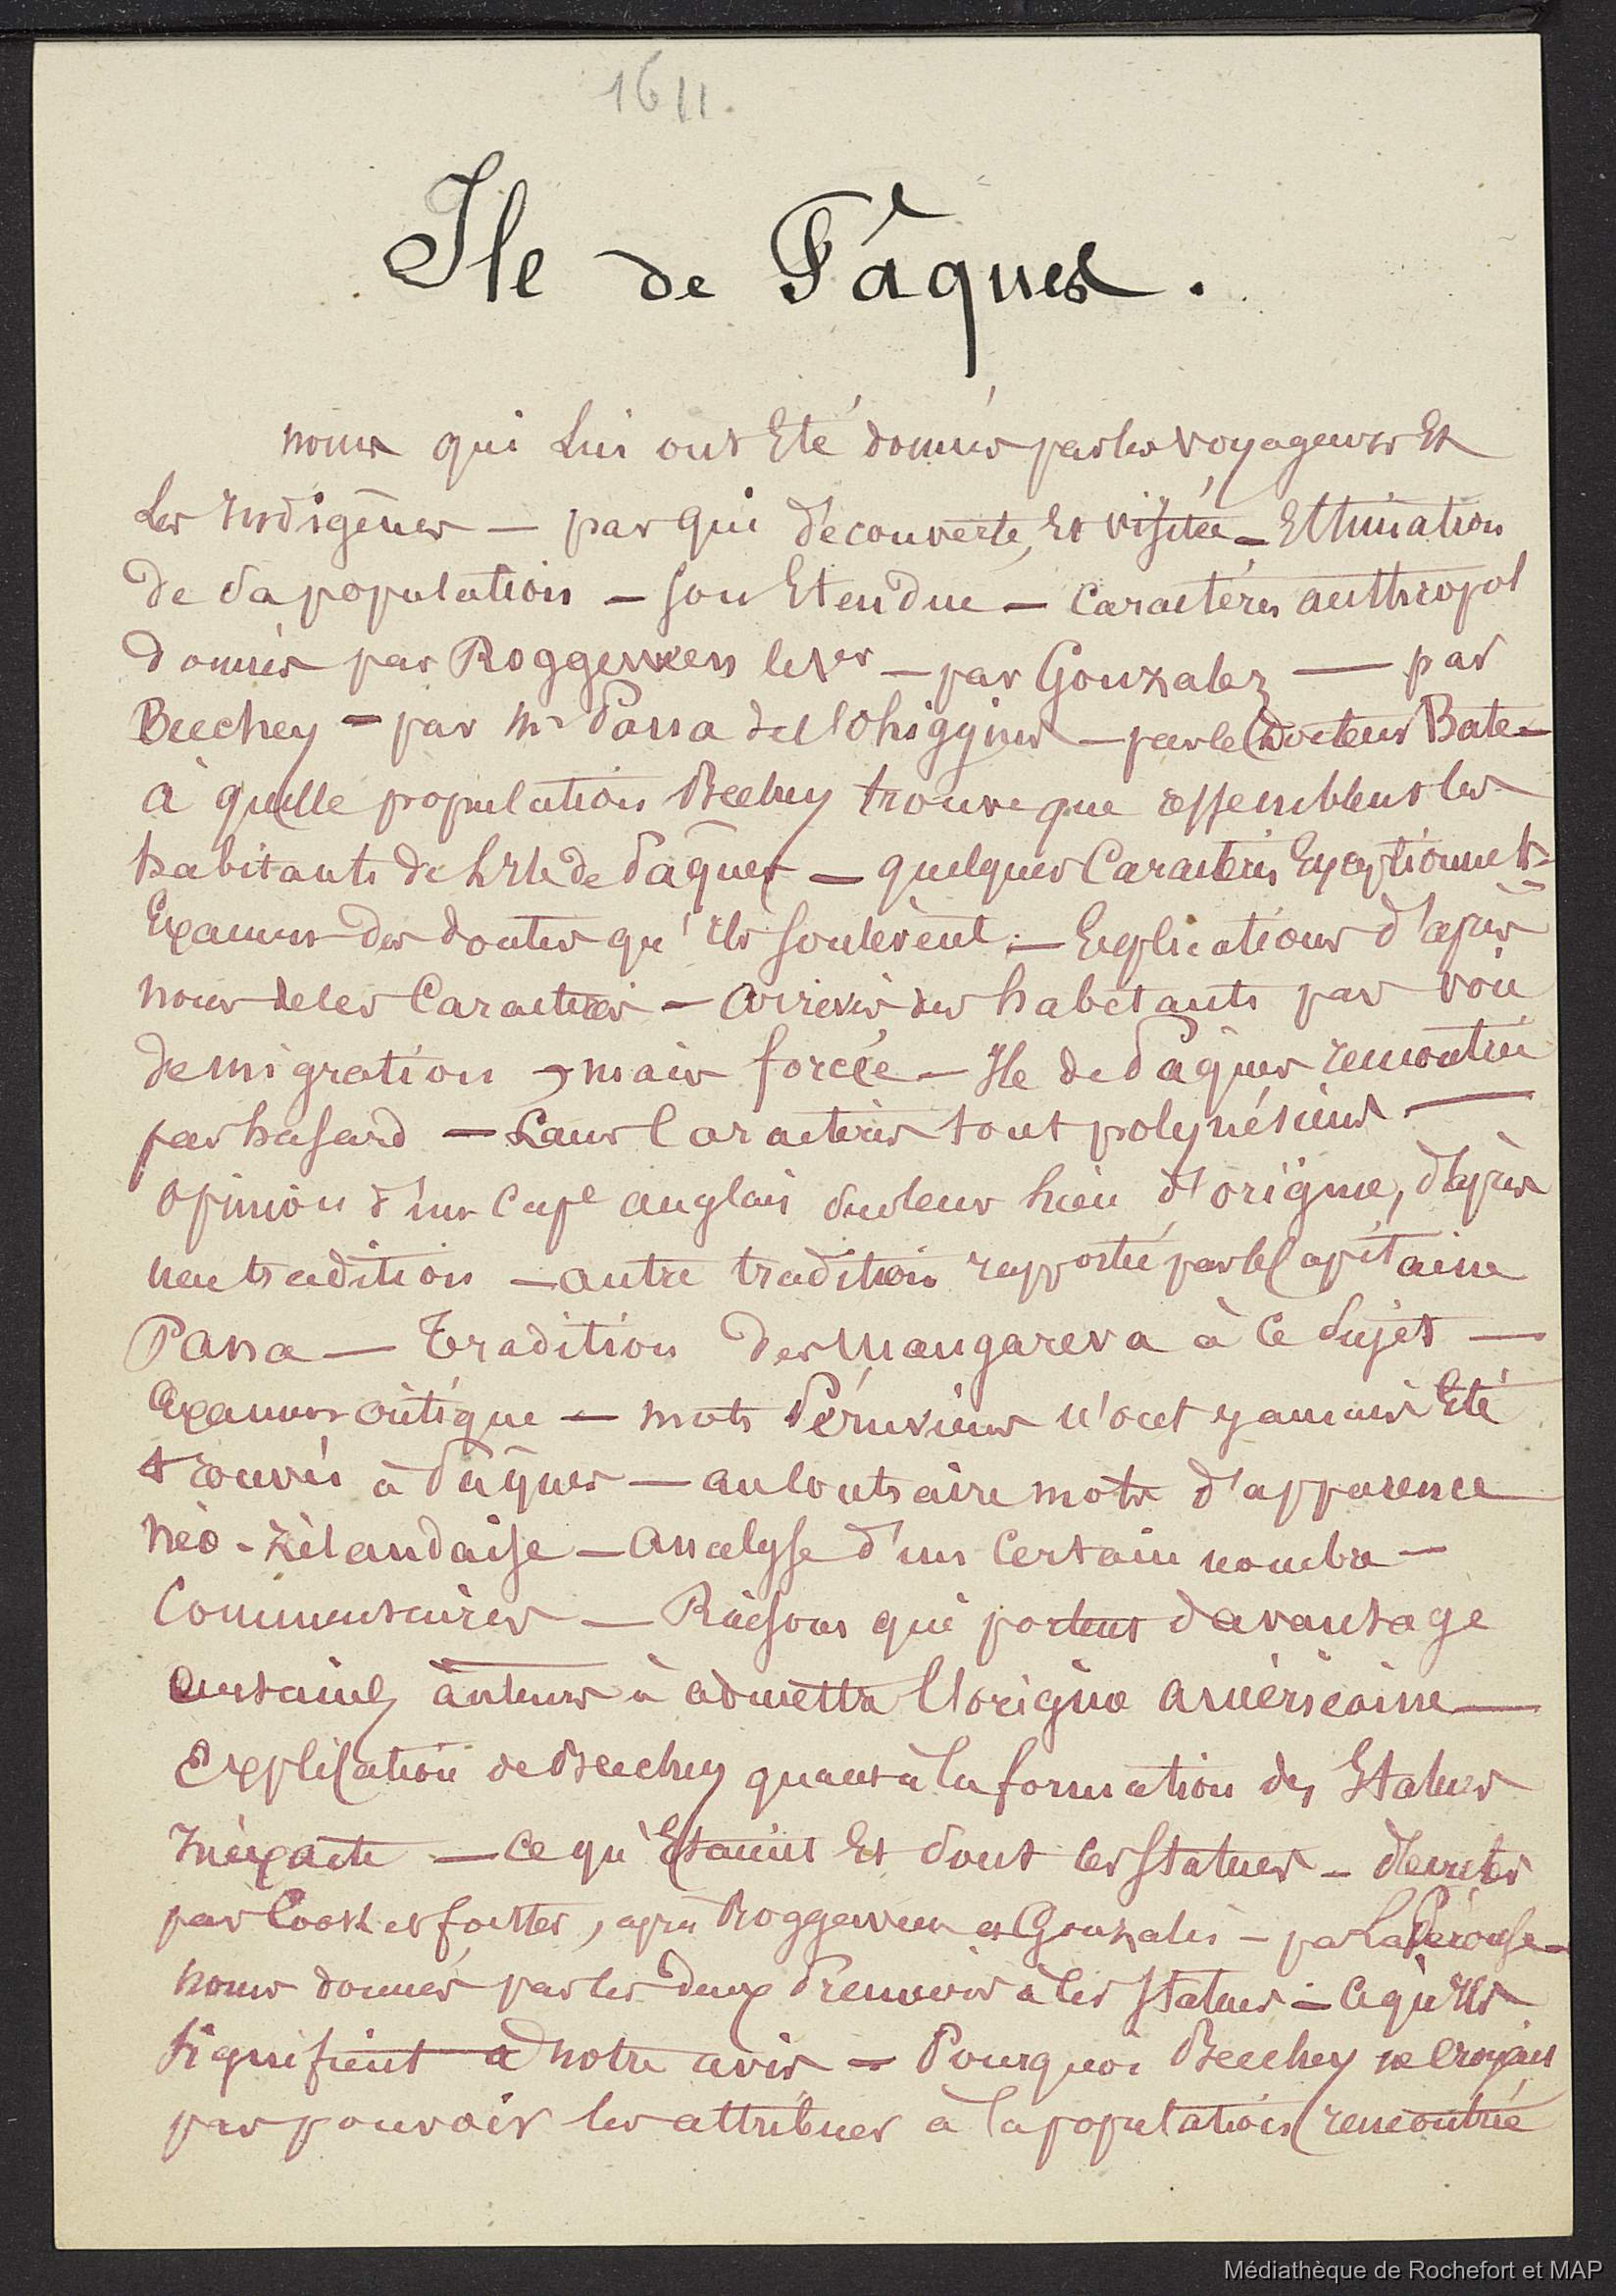 1611.
Ile de Pâques.
noms qui lui ont été donnés par les voyageurs et
les Indigènes — par qui découverte, et visitée — Estimation
de sa population — son Etendue — caractères anthropol
donnés par Roggeween le 1er — par Gonzalez — par
Beechey — par Mr Passa de l'Ohiggins — par le Docteur Bate —
à quelle population Beechey trouve que ressemblent les
habitants de l'Ile de Pâques — quelques Caractères Exceptionnels —
Examen des doutes qu'ils soulèvent — Explications d'après
nous de ces Caractères — arrivés des habitants par voie
de migration, mais forcée — Ile de Pâques rencontrée
par hasard — Leurs Caractères sont polynésiens —
opinion d'un Cape anglais sur leur lieu d'origine, d'après
une tradition — autre tradition rapportée par le Capitaine
Passa — Tradition des Mangareva à ce sujet —
Examen critique — mots Péruviens n'ont jamais été
trouvés à Pâques — au contraire mots d'apparence
néo-zélandaise — analyse d'un certain nombre —
Commentaires — Raisons qui portent davantage
certains auteurs à admettre l'origine américaine —
Explication de Beechey quant à la formation des Statues
Inéxacte — ce qu'Etaient Et sont les Statues — décrites
par Cook et forster, après Roggeween et Gonzalès — par La Pérouse —
noms donnés par les deux Premiers à les statues — ce qu'Ils
signifient à notre avis — Pourquoi Beechey ne croyait
pas pouvoir les attribuer à la population rencontrée
Médiathèque de Rochefort et MAP